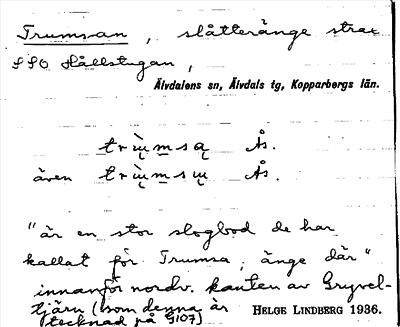 Trumsan, slåtteränge strax
SSO Hållstugan,
Älvdalens sn, Älvdals tg, Kopparbergs län.
trùmsą Ås.
även trùmsɯ Ås.
"är en stor slogbod de har
kallat för Trumsa, änge där"
innanför nordv. kanten av Gryvel-
tjärn (som denna är
tecknad på G107)
HELGE LINDBERG 1936.